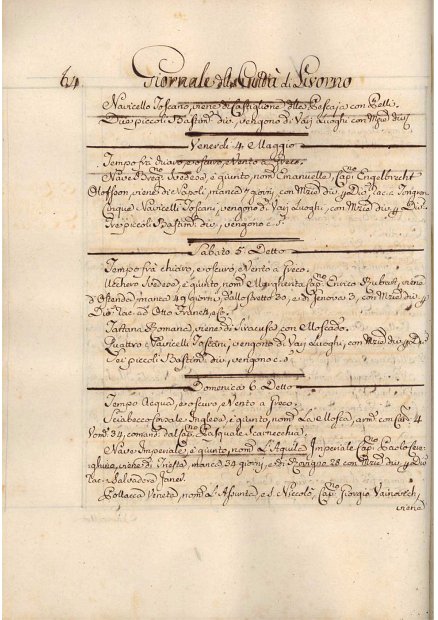 64 Giornale della Città di Livorno
Navicello Toscano, viene di Castiglione della Pescaja con Pelli.
Due piccoli Bastim. div. vengono da Varj Luoghi con Mzie div.
Venerdi 4 Maggio
Tempo frà nuvo, e oscuro, Vento a Greco.
Nave Svedese, è giunto, nom. Emanuelle, Cap.no Engelbrecht
Oloffson, viene di Napoli, manca 7 giorni, con Mzie div.
Cinque Navicelli Toscani, vengono di Varj Luoghi, con Mzie div.
Tre piccoli Bastim. div. vengono c.s.
Sabato 5 Detto
Tempo frà chiaro, e oscuro, e Vento a Greco.
Uchero Svedese, è giunto, nom. Margherita Cap.no Enrico, viene
d'Ostenda, manca 49 giorni, dallo stretto 30, e di Genova 3, con Mzie div.
Tartana Romana, viene di Siracusa con Moscado.
Quattro Navicelli Toscani, vengono di Varj Luoghi, con Mzie div.
Sei piccoli Bastim. div. vengono c.s.
Domenica 6 Detto
Tempo Acqua, e oscuro, e Vento a Greco.
Sciabecco Corsale Inglese, è giunto, nom. La Mosca, arm. con Can. 4
Uom. 34, comand. dal Cap.no Pasquale Scarnecchia.
Nave Imperiale, è giunto, nom. L'Aquila Imperiale Cap.no Paolo
viene di Trieste, manca 34 giorni, e di 28 con Mzie div.
Salvadore
Pollacca Veneta, nom. L'Assunta, e S. Niccolò, Cap.no Giorgio Vainovich,
viene